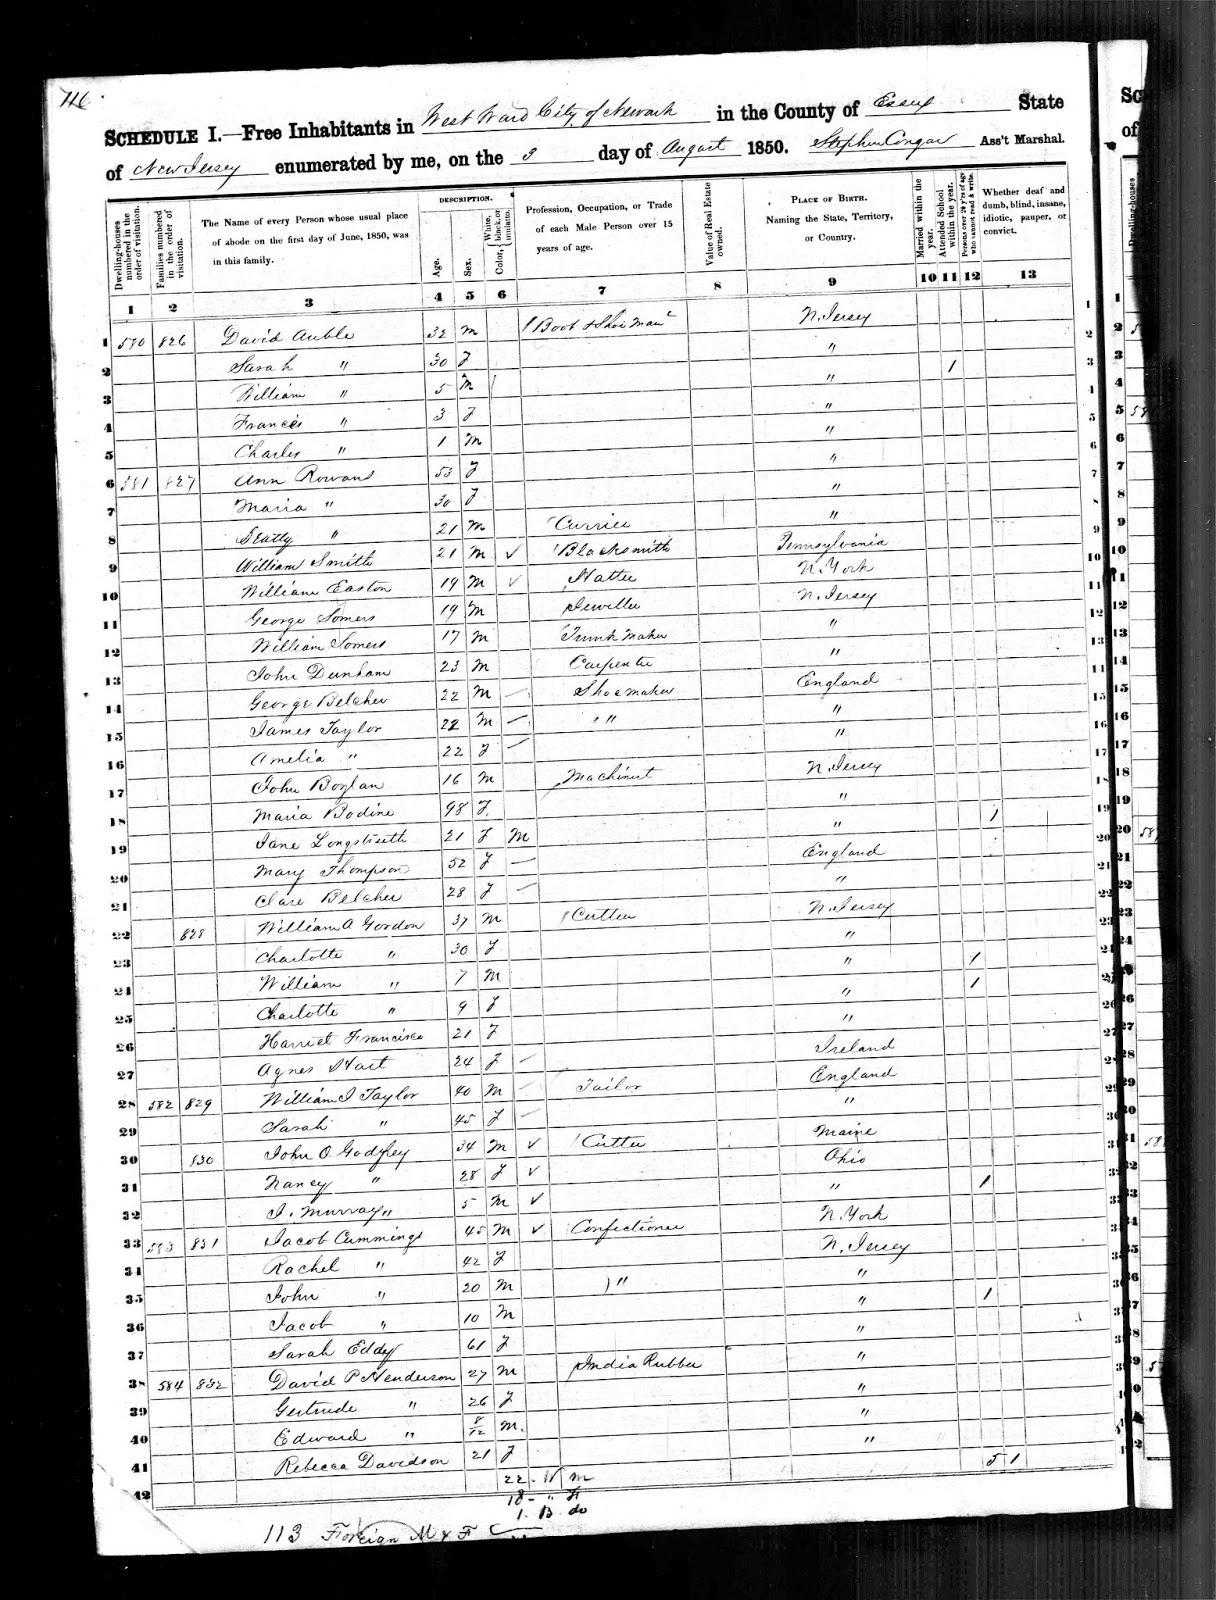 716
SCHEDULE I.—Free Inhabitants in West Ward City of Newark in the County of Essex State
of New Jersey enumerated by me, on the 3 day of August 1850. Stephen Congar Ass't Marshal.
Dwelling-houses numbered in the order of visitation.
Families numbered in the order of visitation.
The Name of every Person whose usual place of abode on the first day of June, 1850, was in this family.
DESCRIPTION.
Age.
Sex.
Color, White, black, or mulatto.
Profession, Occupation, or Trade of each Male Person over 15 years of age.
Value of Real Estate owned.
PLACE OF BIRTH. Naming the State, Territory, or Country.
Married within the year.
Attended School within the year.
Persons over 20 y'rs of age who cannot read & write.
Whether deaf and dumb, blind, insane, idiotic, pauper, or convict.
1 2 3 4 5 6 7 8 9 10 11 12 13
1 580 826 David Auble 32 M Boot & Shoe Man' N. Jersey 1
2 Sarah " 30 F " 2
3 William " 5 M " 1 3
4 Francis " 3 F " 4
5 Charles " 1 M " 5
6 581 827 Ann Rowans 53 F " 6
7 Maria " 30 F " 7
8 " 21 M Currier " 8
9 William Smith 21 M Blacksmith Pennsylvania 9
10 William Easton 19 M Hatter N. York 10
11 George Somers 19 M Jeweller N. Jersey 11
12 William Somers 17 M Trunk Maker " 12
13 John Dunham 23 M Carpenter " 13
14 George Belcher 22 M Shoemaker England 14
15 James Taylor 22 M " " " 15
16 Amelia " 22 F " 16
17 John Boylan 16 M Machinist N. Jersey 17
18 Maria Bodine 98 F " 18
19 Jane Longstreeth 21 F M " 1 19
20 Mary Thompson 52 F England 20
21 Clare Belcher 28 F " 21
22 828 William A Gordon 37 M Cutter N. Jersey 22
23 Charlotte " 30 F " 23
24 William " 7 M " 1 24
25 Charlotte " 9 F " 1 25
26 Harriet Francisco 21 F " 26
27 Agnes Hart 24 F Ireland 27
28 582 829 William J Taylor 40 M Tailor England 28
29 Sarah " 45 F " 29
30 830 John O. Godfrey 34 M Cutter Maine 30
31 Nancy " 28 F Ohio 31
32 J. Murray " 5 M " 1 32
33 583 831 Jacob Cummings 45 M Confectioner N. York 33
34 Rachel " 42 F N. Jersey 34
35 John " 20 M " " 35
36 Jacob " 10 M " 1 36
37 Sarah Eddy 61 F " 37
38 584 832 David P Henderson 27 M India Rubber " 38
39 Gertrude " 26 F " 39
40 Edward " 8/12 M. " 40
41 Rebecca Davidson 21 F " 41
42 22 - W M 5 1
18 - " F
1. B do
113 Foreign M & F